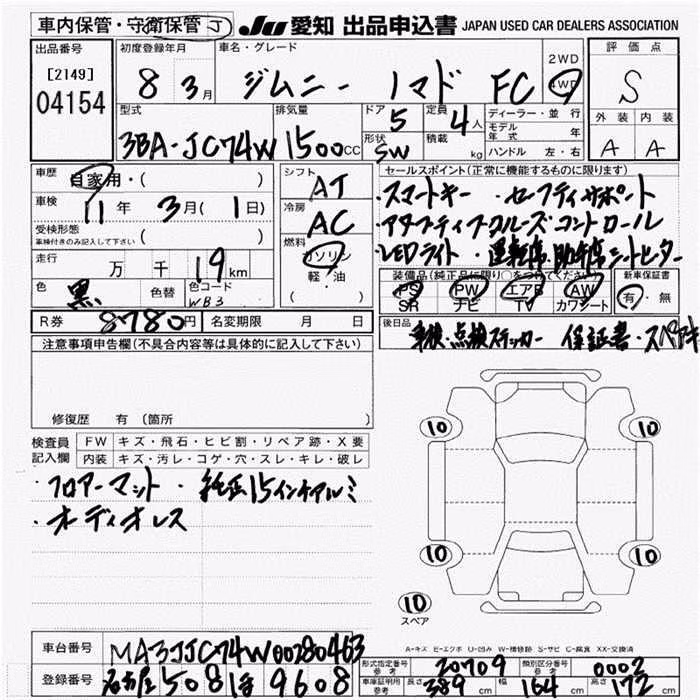 車内保管・守衛保管 J
JU 愛知 出品申込書 JAPAN USED CAR DEALERS ASSOCIATION
出品番号
[2149]
04154
初度登録年月
8 3月
車名・グレード
ジムニー ノマド FC
2WD
4WD
評価点
S
型式
3BA-JC74W
排気量
1500cc
ドア
5
定員
4人
形状
SW
積載
kg
ディーラー・並行
モデル年式 年
ハンドル 左・右
外装 内装
A A
車歴
自家用・( )
車検
11年 3月(1日)
受検形態
車検付きのみ記入して下さい ( )
走行
万 千 19km
色
黒
色替
色コード
WB3
シフト
AT
冷房
AC
燃料
ガソリン
軽・油
( )
セールスポイント(正常に機能するものに限ります)
・スマートキー ・セーフティサポート
・アダプティブクルーズコントロール
・LEDライト ・運転席・助手席シートヒーター
装備品(純正品に限り○をつけてください)
PS PW エアB AW
SR ナビ TV カワシート
新車保証書
有・無
R券 8780円 名変期限 月 日
後日品
車検・点検ステッカー 保証書・スペアキ
注意事項申告欄(不具合内容等は具体的に記入して下さい)
修復歴 有 (箇所
検査員記入欄
FW キズ・飛石・ヒビ割・リペア跡・X要
内装 キズ・汚レ・コゲ・穴・スレ・キレ・破レ
・フロアーマット ・純正15インチアルミ
・オーディオレス
10 10
10 10
10
スペア
A-キズ E-エクボ U-凹み W-補修跡 S-サビ C-腐食 XX-交換済
車台番号 MA3JJC74W00280463
登録番号 名古屋 508 ほ 9608
型式指定番号
参考
20709
類別区分番号
参考
0002
車庫証明用
参考
長さ 389cm 幅 164cm 高さ 172cm